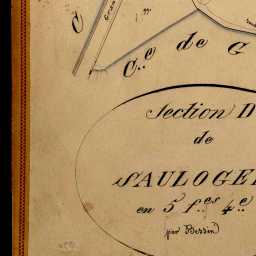 C
C.ne de G
Section D
de
SAULOGE
en 5 f.es 4.e
par Bessin